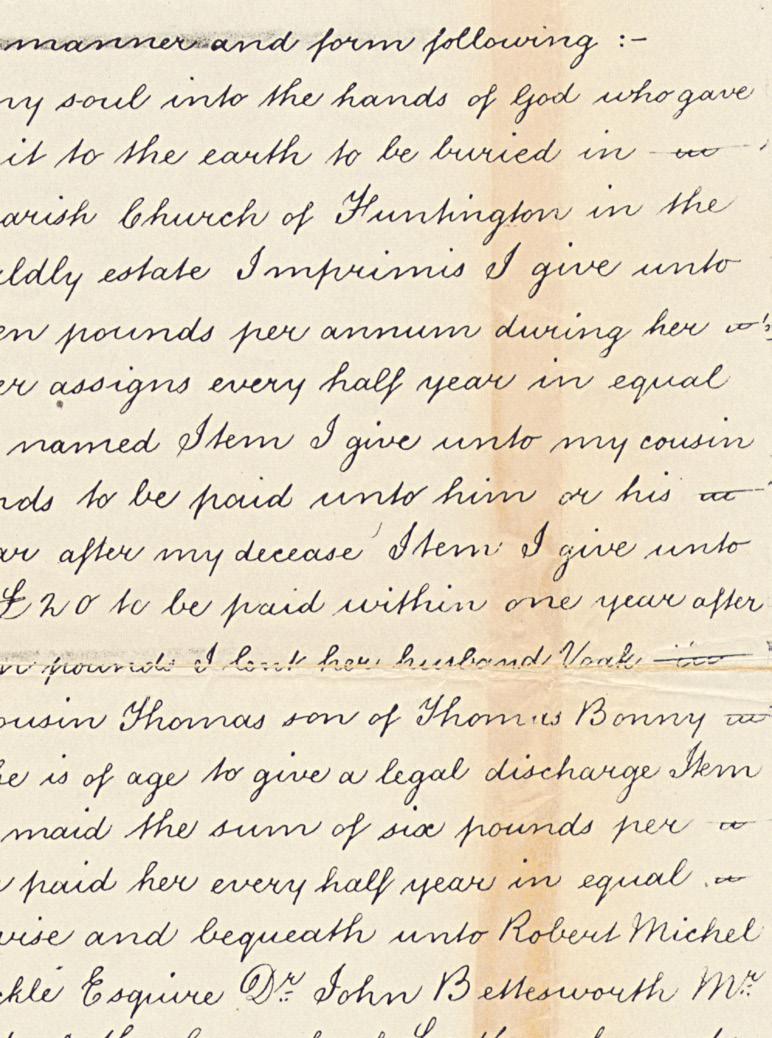 manner and form following :-
ny soul into the hands of God who gave
it to the earth to be buried in
arish Church of Huntington in the
ldly estate Imprimis I give unto
en pounds per annum during her
er assigns every half year in equal
named Item I give unto my cousin
nds to be paid unto him or his
ar after my decease Item I give unto
£20 to be paid within one year after
n pounds I lent her husband Voak
ousin Thomas son of Thomas Bonny
he is of age to give a legal discharge Item
maid the sum of six pounds per
paid her every half year in equal
vise and bequeath unto Robert Michel
ckle Esquire Dr. John Bettesworth Mr.